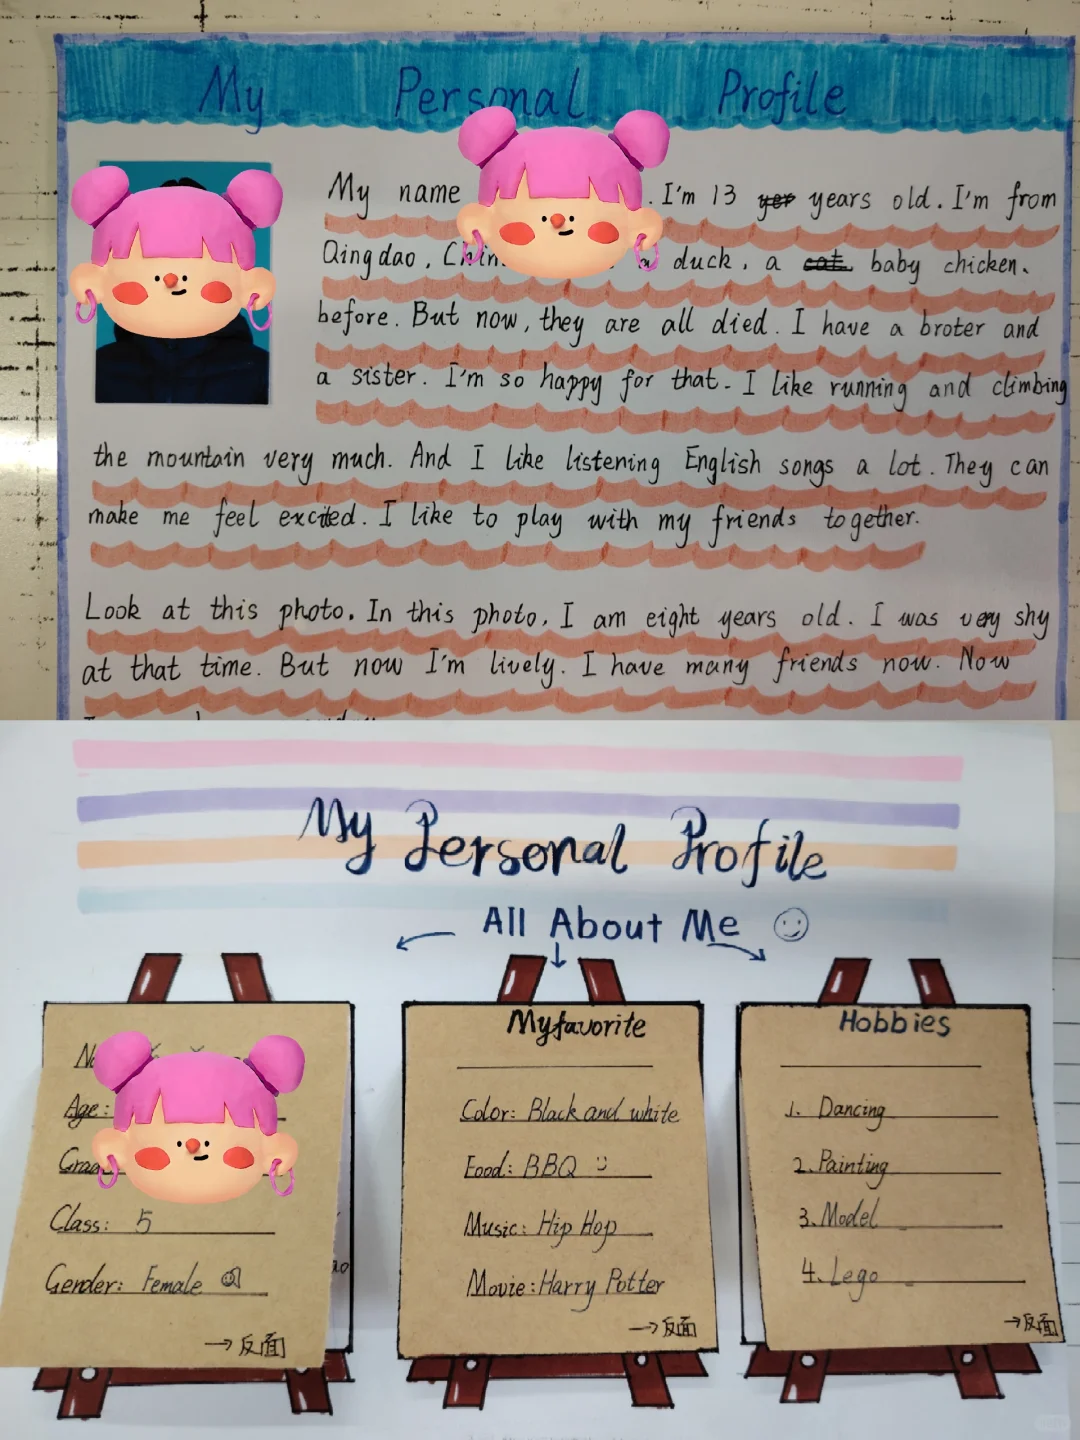 My Personal Profile
My name . I'm 13 years old. I'm from
Qingdao, a duck, a baby chicken.
before. But now, they are all died. I have a broter and
a sister. I'm so happy for that. I like running and climbing
the mountain very much. And I like listening English songs a lot. They can
make me feel excited. I like to play with my friends together.
Look at this photo. In this photo, I am eight years old. I was very shy
at that time. But now I'm lively. I have many friends now. Now
My Personal Profile
All About Me
Age:
Class: 5
Gender: Female
→反面
My favorite
Color: Black and white
Food: BBQ
Music: Hip Hop
Movie: Harry Potter
→反面
Hobbies
1. Dancing
2. Painting
3. Model
4. Lego
→反面